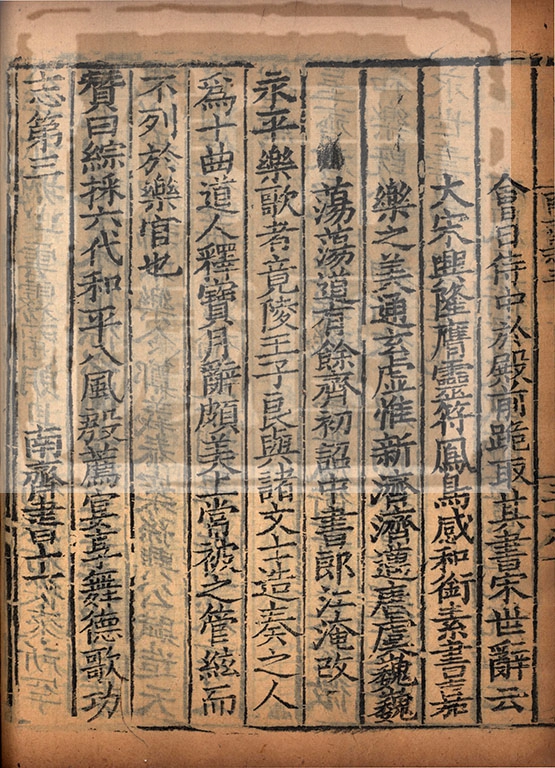 會日侍中於殿前跪取其書宋世辭云
大宋興隆膺靈符鳳鳥感和銜素書嘉
樂之美通玄虛惟新濟濟邁唐虞巍巍
蕩蕩道有餘齊初詔中書郎江淹改
永平樂歌者竟陵王子良與諸文士造奏之人
爲十曲道人釋寶月辭頗美上常被之管絃而
不列於樂官也
贊曰綜採六代和平八風殷薦宴享舞德歌功
志第三 南齊書十一